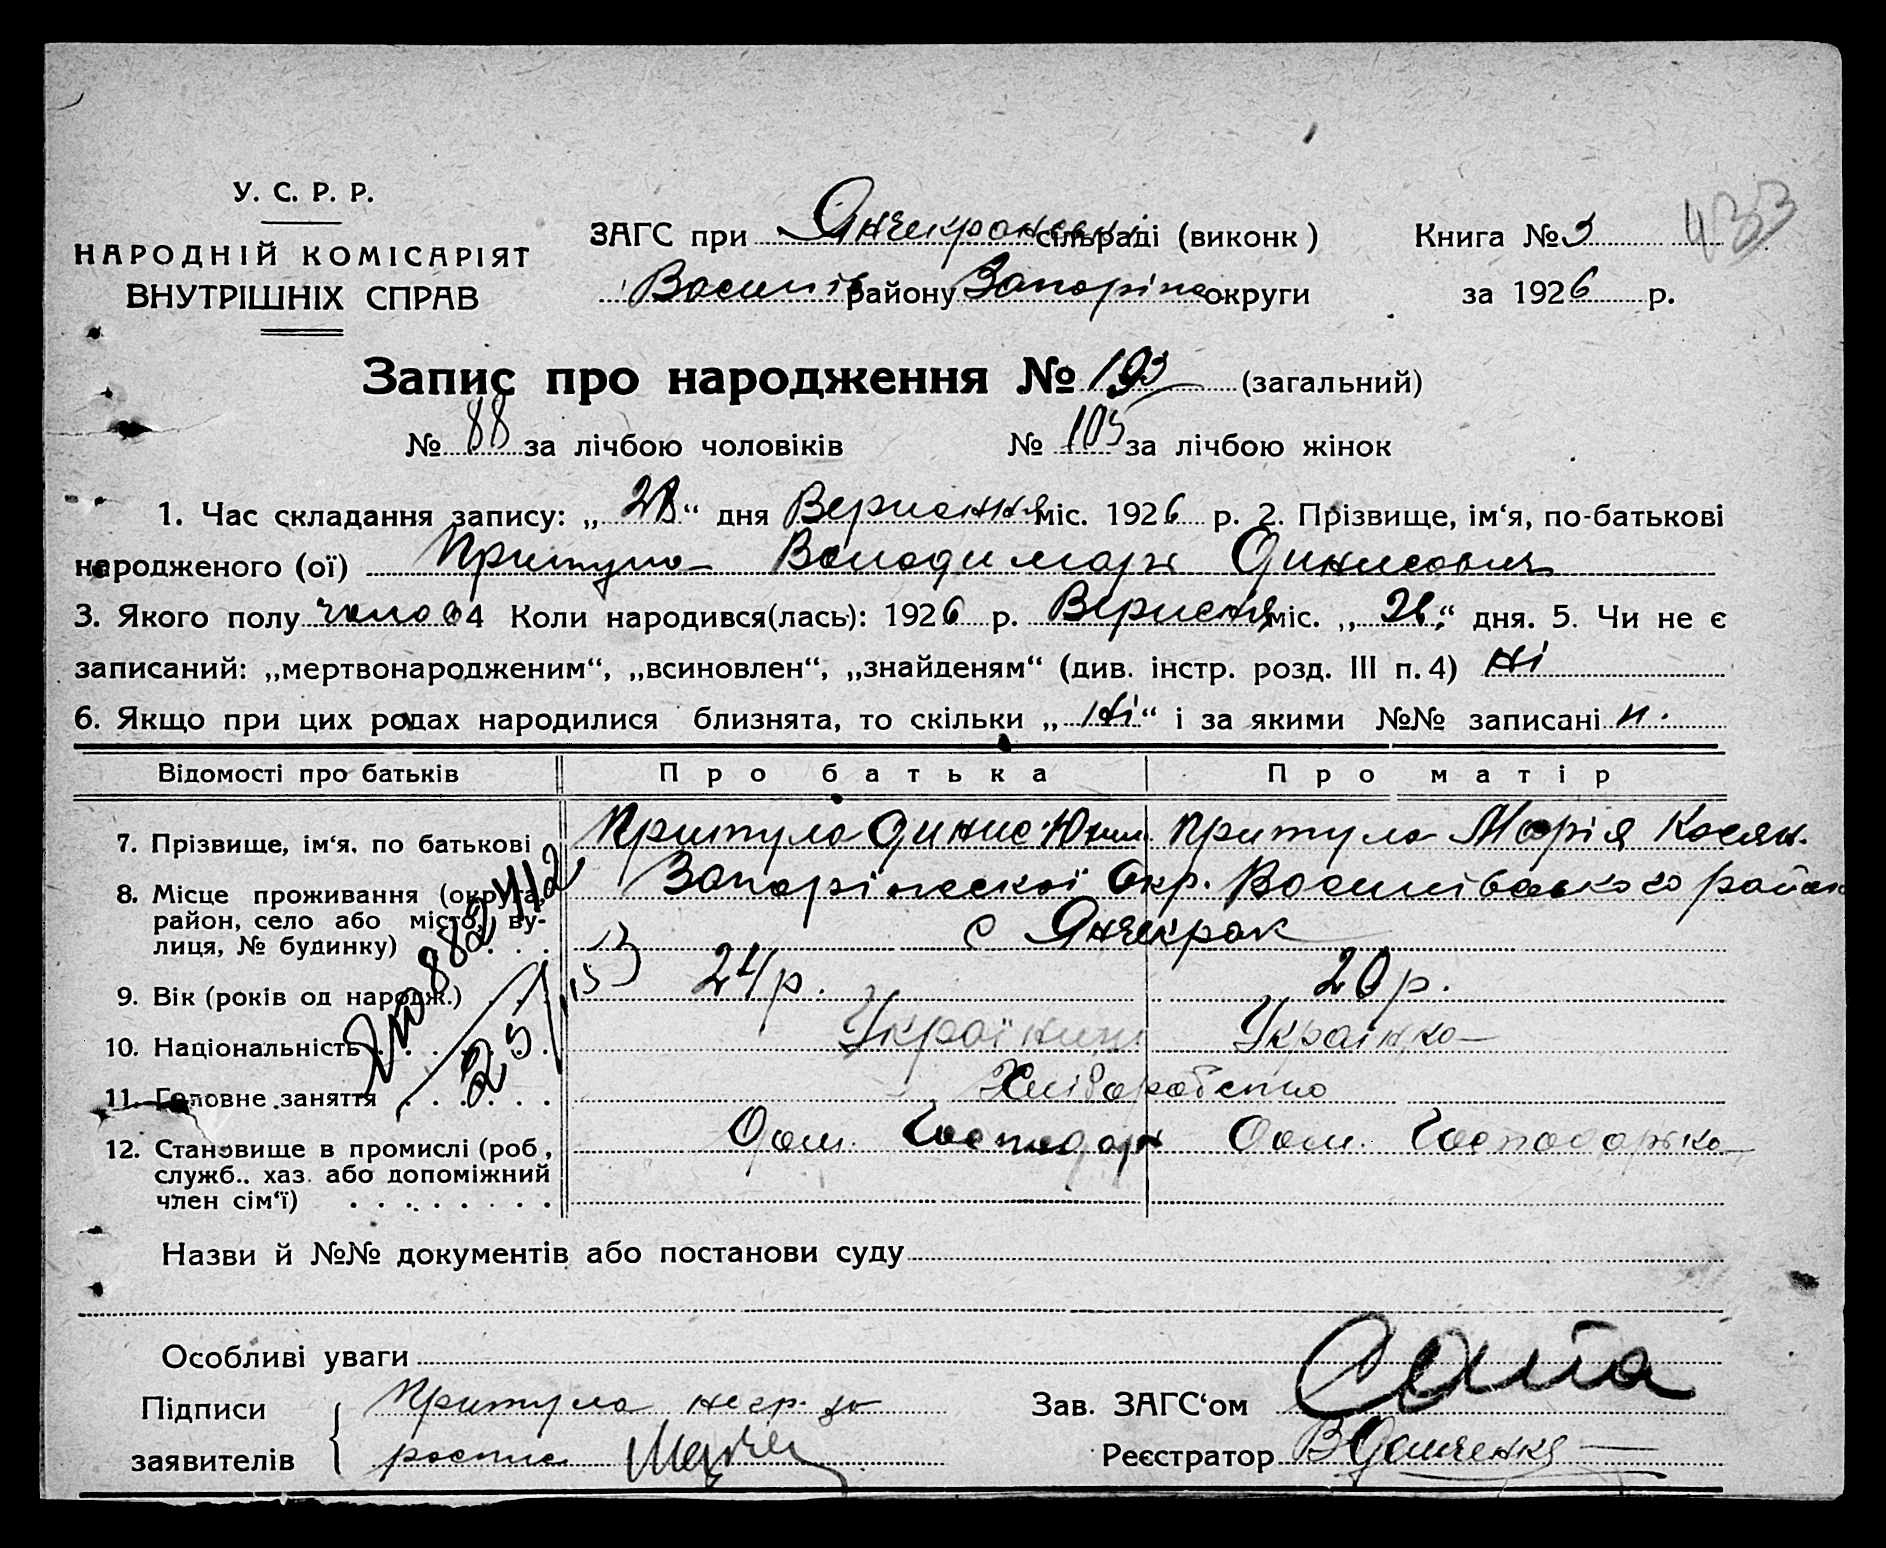 У. С. Р. Р.
НАРОДНІЙ КОМІСАРІЯТ
ВНУТРІШНІХ СПРАВ
ЗАГС при Янчекраківській сільраді (виконк)
Василів району Запоріж округи
Книга № 3
433
за 1926 р.
Запис про народження № 193 (загальний)
№ 88 за лічбою чоловіків № 105 за лічбою жінок
1. Час складання запису: „28“ дня Вересння міс. 1926 р. 2. Прізвище, ім‘я, по-батькові
народженого (ої) Притула Володимарь Динисович
3. Якого полу чолов 4 Коли народився(лась): 1926 р. Вересня міс. „26“ дня. 5. Чи не є
записаний: „мертвонародженим“, „всиновлен“, „знайденям“ (див. інстр. розд. III п. 4) ні
6. Якщо при цих родах народилися близнята, то скільки „ні“ і за якими №№ записані н.
Відомості про батьків Про батька Про матір
7. Прізвище, ім‘я, по батькові Притула Динис Притула Марія Касян.
8. Місце проживання (округа, район, село або місто, ву-лиця, № будинку) Запоріжської Окр. Василівського район
с Янчекрак
9. Вік (років од народж.) 24 р. 20 р.
10. Національність Українець Українка
11. Головне заняття Хліборобство
12. Становище в промислі (роб, служб., хаз. або допоміжний член сім‘ї) Дом. Господарь Дом. Господарька
Назви й №№ документів або постанови суду
Особливі уваги
Підписи заявителів Притула негр. за
роспис
Зав. ЗАГС‘ом
Реєстратор В Домченко